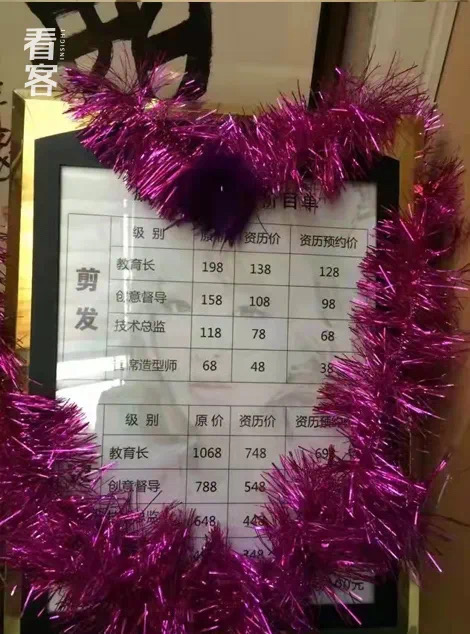 看客
INSIGHT
价目单
级别 原价 资历价 资历预约价
剪发
教育长 198 138 128
创意督导 158 108 98
技术总监 118 78 68
首席造型师 68 48 38
级别 原价 资历价 资历预约
教育长 1068 748
创意督导 788 548
监 648